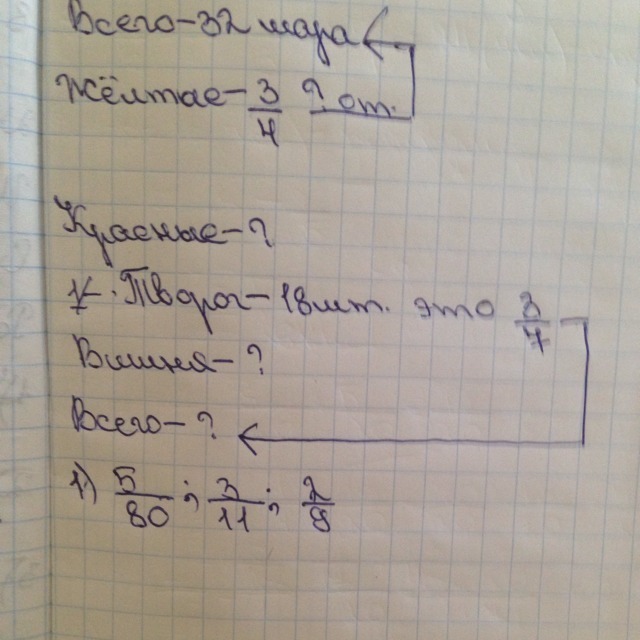 Всего-32 шара
Жёлтые-3/4 ? от.
Красные-?
Творог-18шт. это 3/7
Вишня-?
Всего-?
1) 5/80; 3/11; 2/8